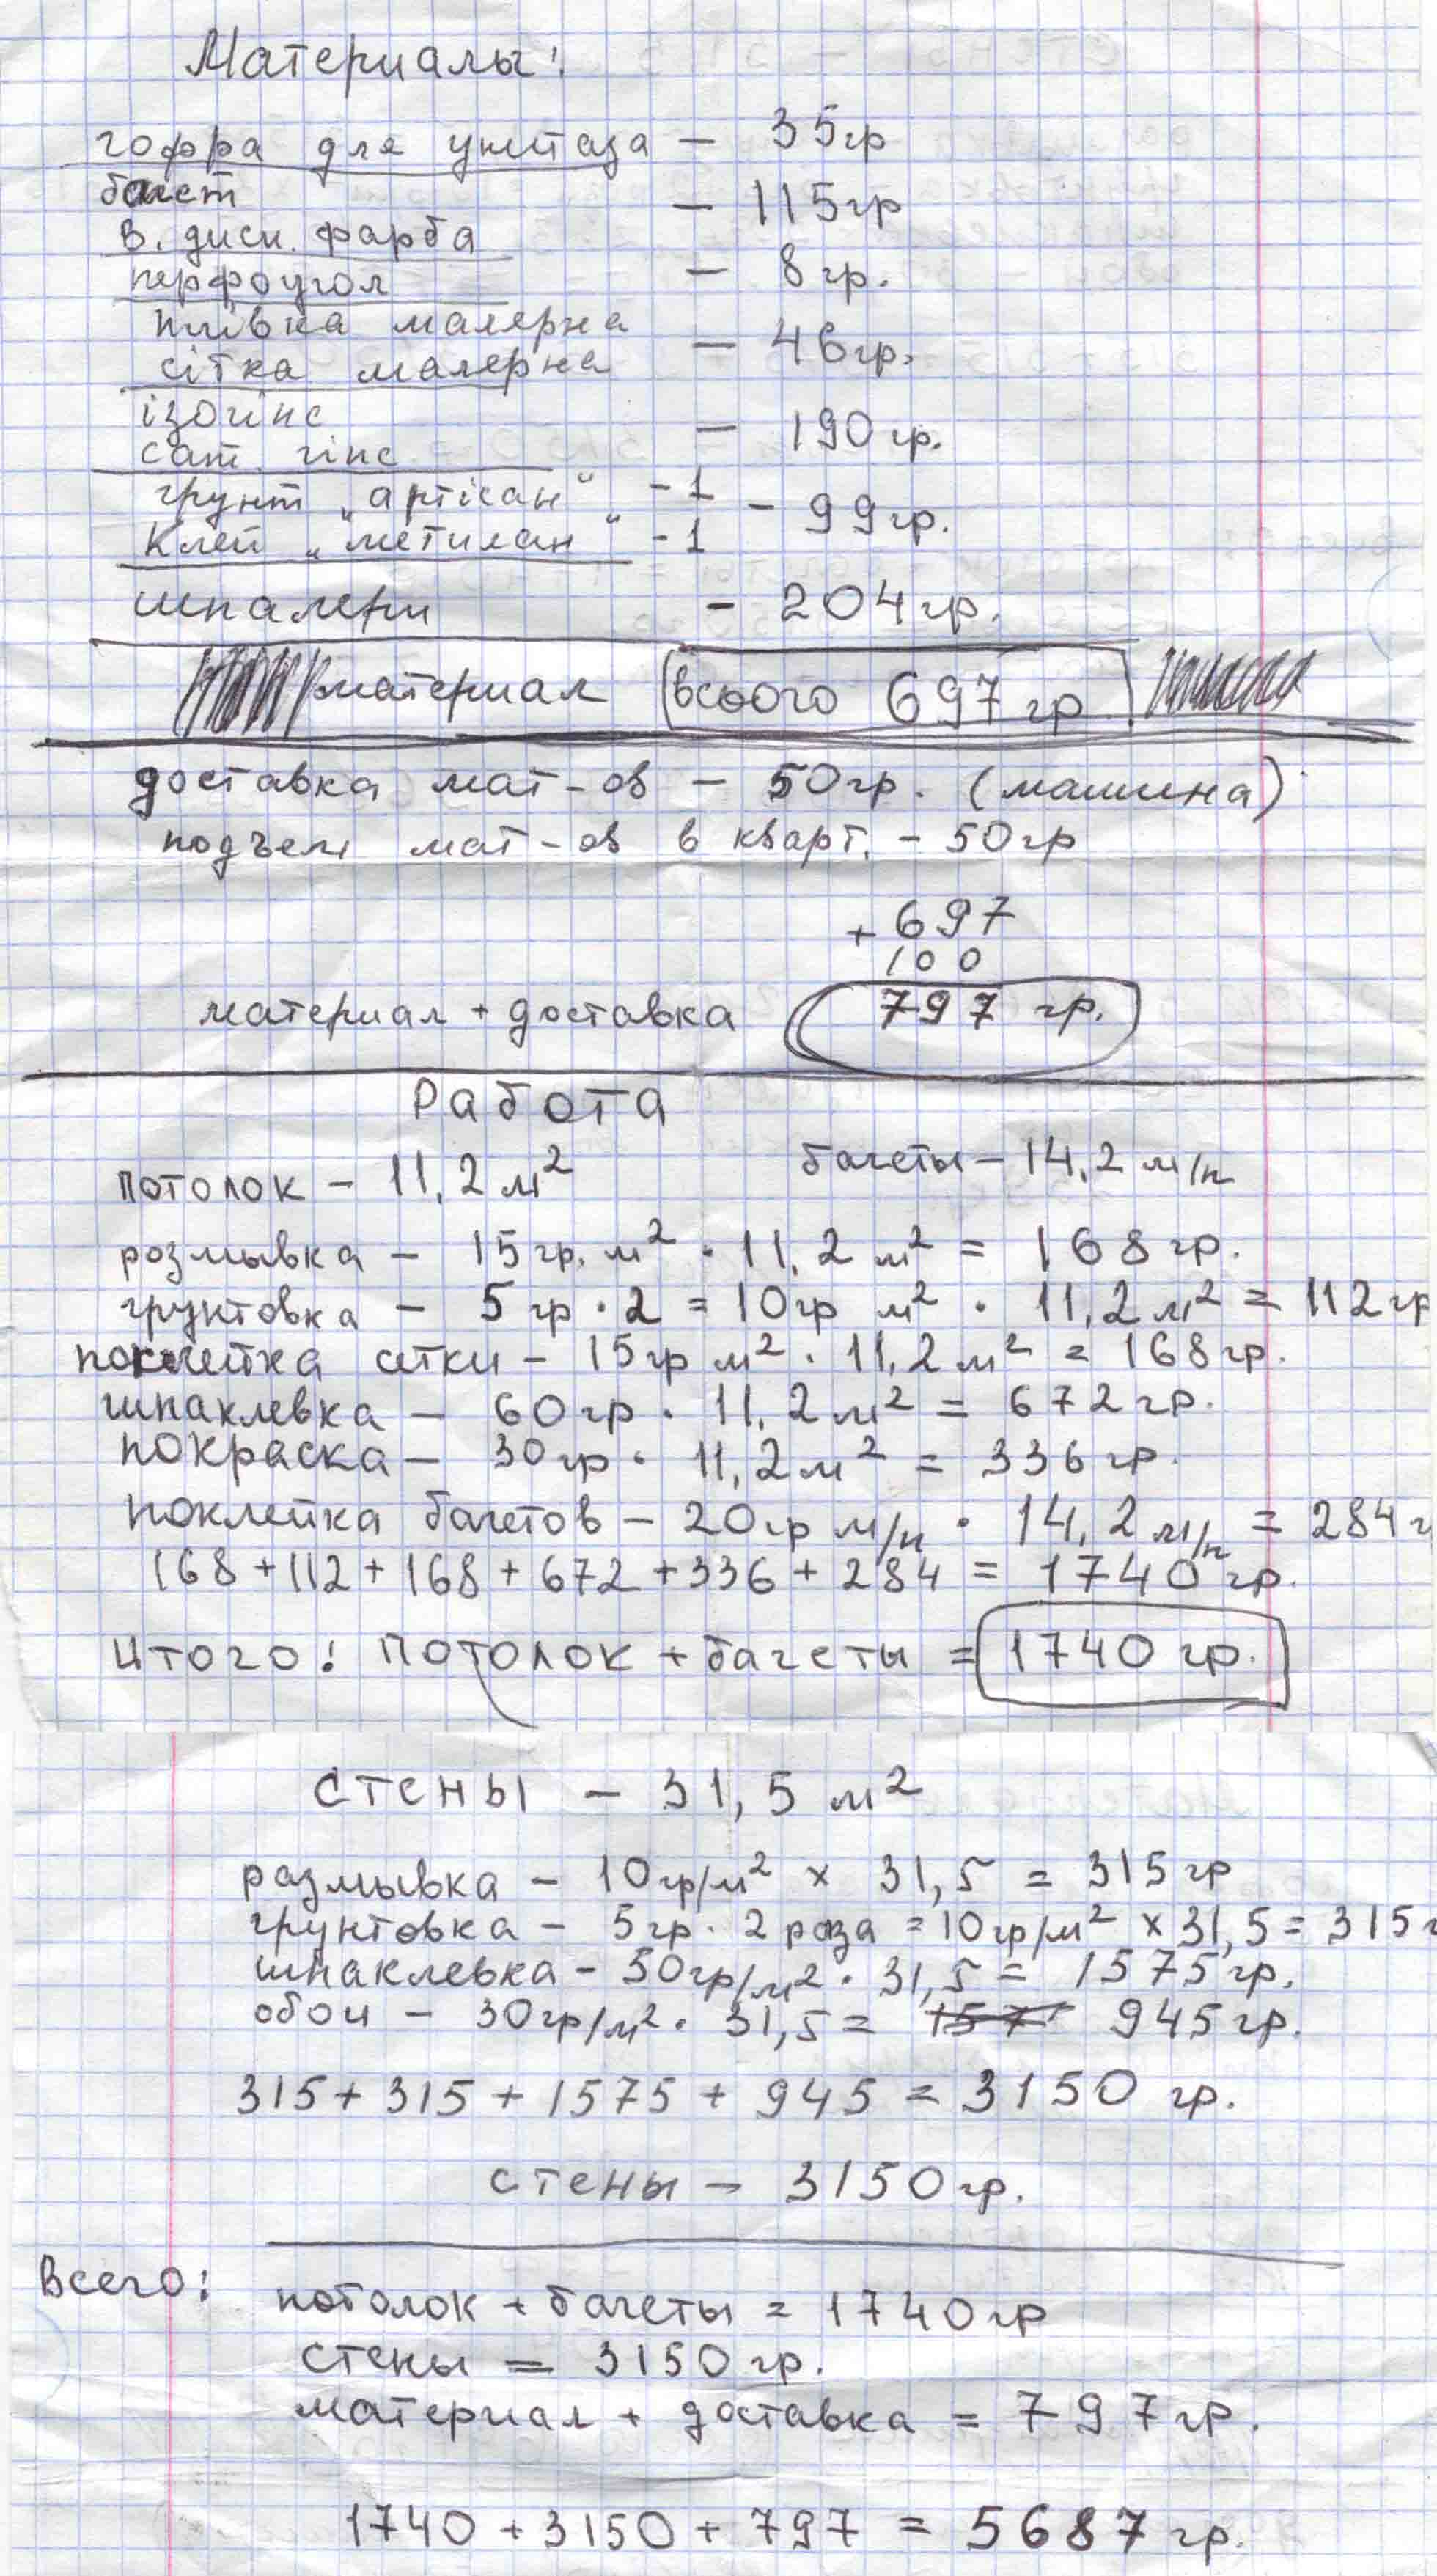 Материалы:
гофра для унитаза – 35гр
багет
в. дисп. фарба – 115гр
перфоугол – 8гр.
плівка малярна
сітка малярна – 46гр.
ізогіпс
сат. гіпс – 190гр.
грунт „артісан“ - 1
Клей „метилан“ - 1 – 99гр.
шпалери - 204гр.
материал всього 697гр
доставка мат-ов – 50гр. (машина)
подъем мат-ов в кварт. – 50гр
+ 697
100
материал + доставка 797 гр.
Работа
потолок – 11,2м² багеты – 14,2 м/п
розмывка – 15гр. м² · 11,2м² = 168гр.
грунтовка – 5гр · 2 = 10гр м² · 11,2м² = 112гр
поклейка сетки – 15гр м² · 11,2м² = 168гр.
шпаклевка – 60гр · 11,2м² = 672гр.
покраска – 30гр · 11,2м² = 336гр.
поклейка багетов – 20гр м/п · 14,2м/п = 284г
168 + 112 + 168 + 672 + 336 + 284 = 1740гр.
Итого: потолок + багеты = 1740гр.
стены – 31,5 м²
размывка – 10гр/м² × 31,5 = 315гр
грунтовка – 5гр · 2 раза = 10гр/м² × 31,5 = 315г
шпаклевка – 50гр/м² · 31,5 = 1575гр.
обои – 30гр/м² · 31,5 = 157 945гр.
315 + 315 + 1575 + 945 = 3150 гр.
стены – 3150гр.
Всего: потолок + багеты = 1740гр
стены = 3150гр.
материал + доставка = 797гр.
1740 + 3150 + 797 = 5687гр.